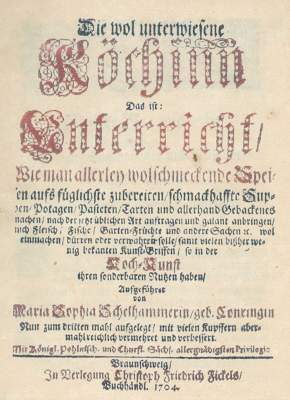 Die wol unterwiesene
Köchinn
Das ist:
Unterricht/
Wie man allerley wolschmeckende Spei-
sen aufs füglichste zubereiten/schmackhaffte Sup-
pen/Potagen/Pasteten/Tarten und allerhand Gebackenes
machen/nach der itzt üblichen Art auftragen und galant anbringen/
auch Fleisch/Fische/Garten-Früchte und andere Sachen ꝛc. wol
einmachen/dürren oder verwahren solle/samt vielen bißher we-
nig bekanten Kunst-Griffen/so in der
Koch-Kunst
ihren sonderbaren Nutzen haben/
Aufgeführet
von
Maria Sophia Schelhammerin/geb. Conringin
Nun zum dritten mahl aufgelegt/mit vielen Kupffern aber-
mahl reichlich vermehret und verbessert.
Mit Königl. Pohlnisch. und Churfl. Sächs. allergnädigsten Privilegio
Braunschweig/
In Verlegung Christoph Friedrich Fickels/
Buchhändl. 1704.